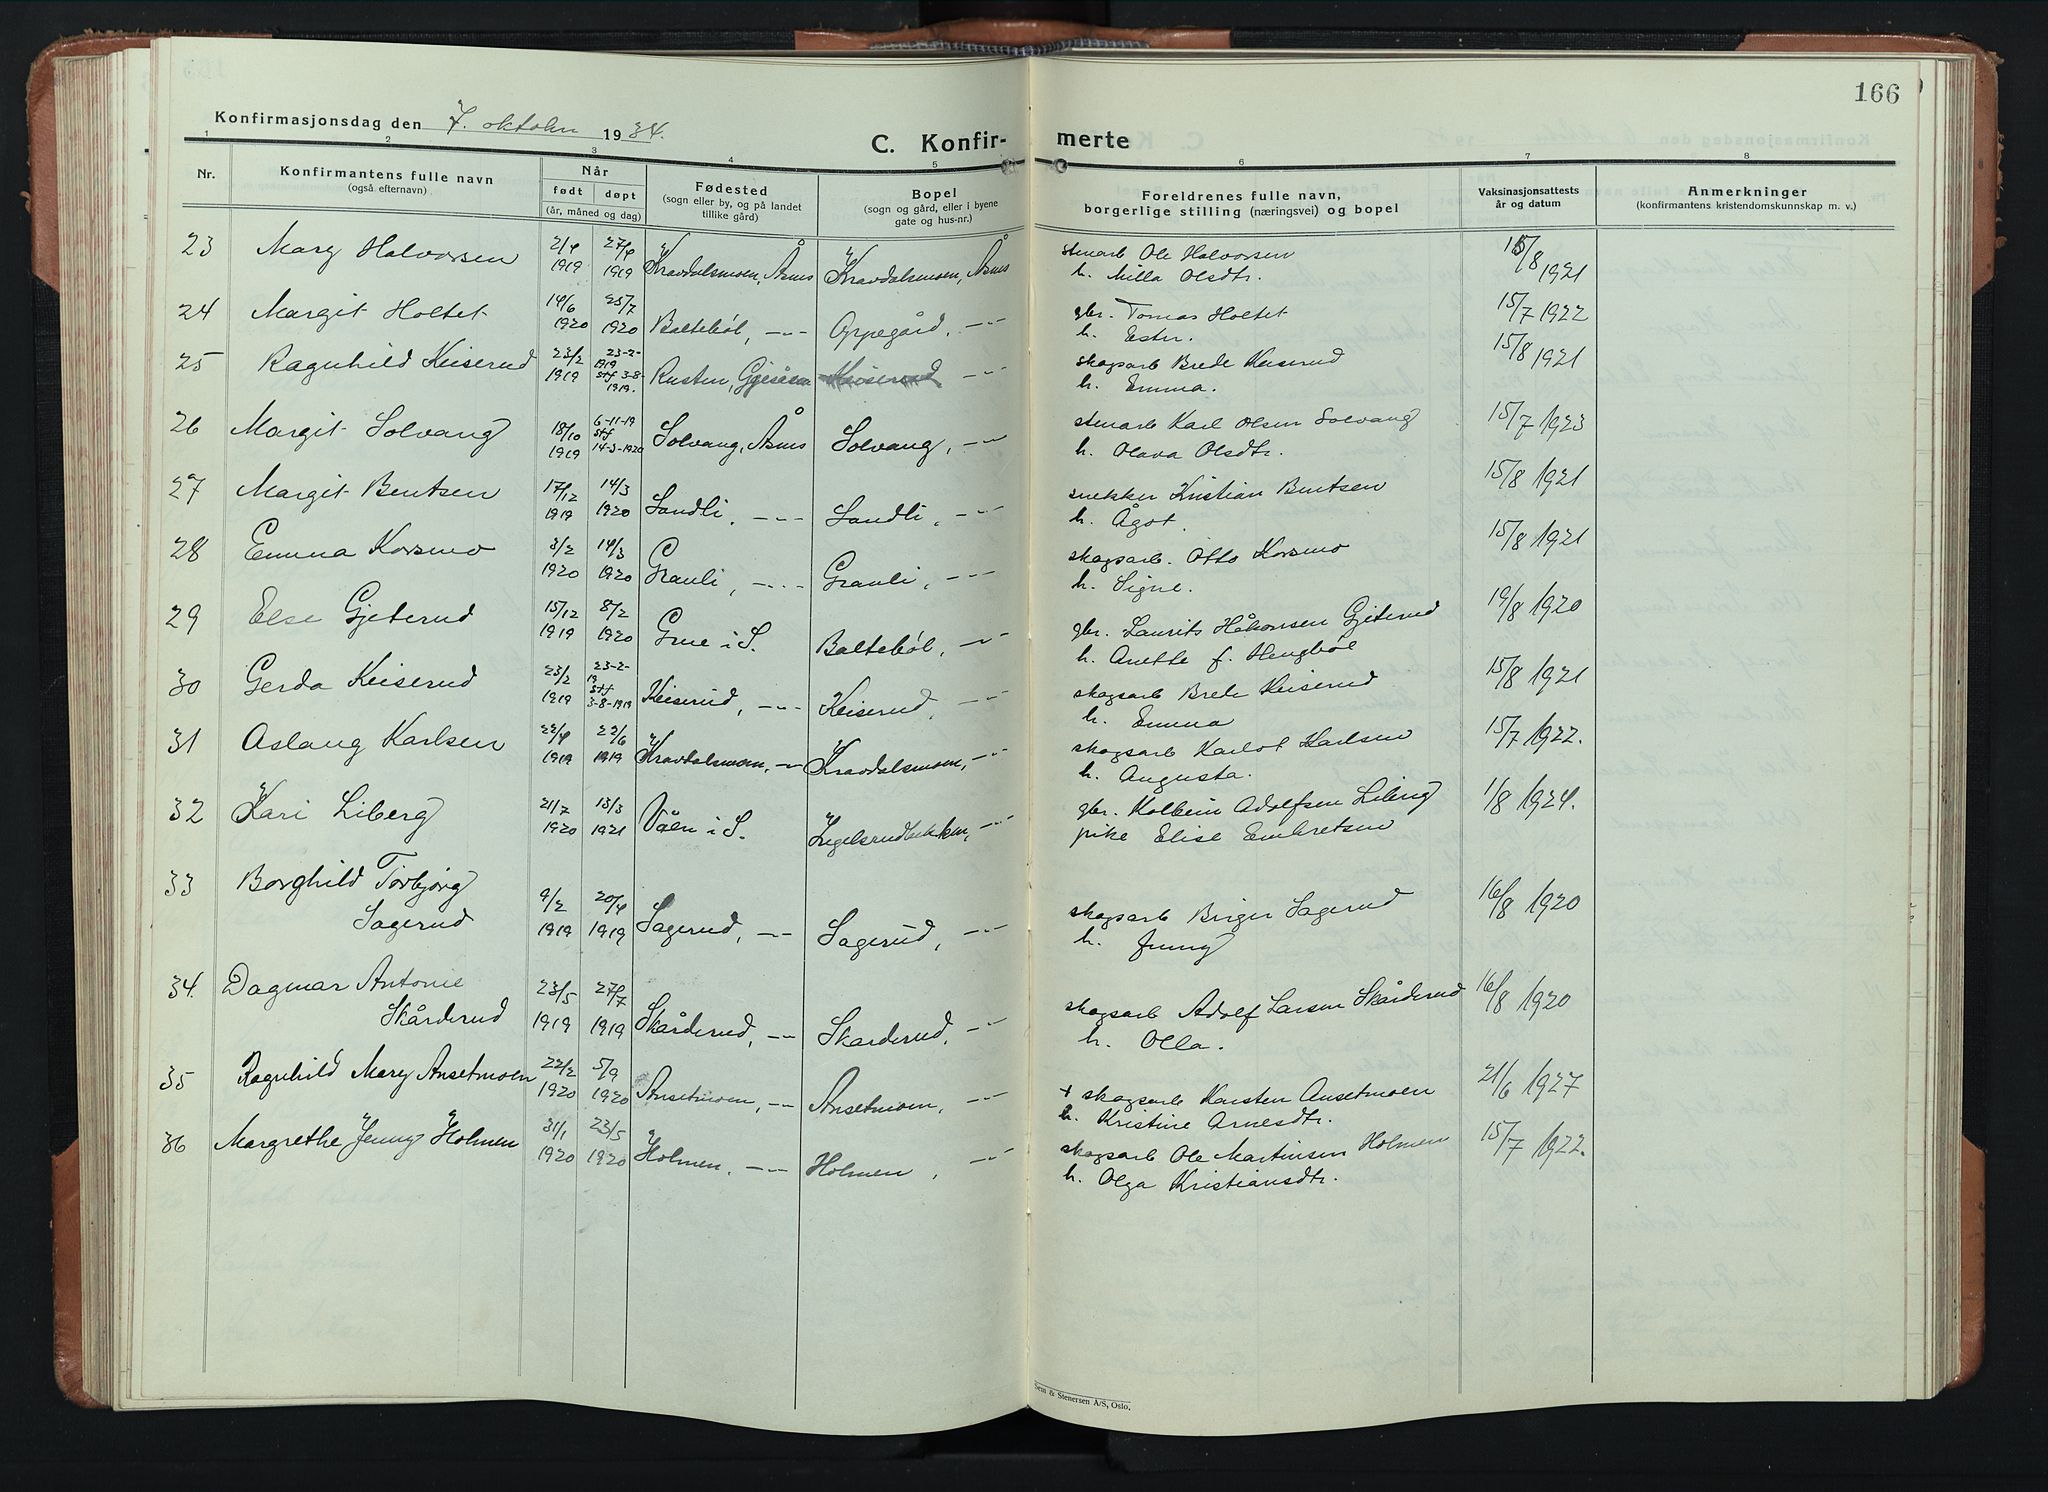 166
Konfirmasjonsdag den 7. oktober 1934.
C. Konfirmerte
1 2 3 4 5 6 7 8
Nr.
Konfirmantens fulle navn
(også efternavn)
Når
født døpt
(år, måned og dag)
Fødested
(sogn eller by, og på landet
tillike gård)
Bopel
(sogn og gård, eller i byene
gate og hus-nr.)
Foreldrenes fulle navn,
borgerlige stilling (næringsvei) og bopel
Vaksinasjonsattests
år og datum
Anmerkninger
(konfirmantens kristendomskunnskap m. v.)
23 Mary Halvorsen 2/4 1919 27/4 1919 Kravdalsmoen, Åsnes Kravdalsmoen, Åsnes stenarb Ole Halvorsen 15/8 1921
h. Milla Olsdtr.
24 Margit Holtet 14/6 1920 25/7 1920 Baltebøl, -"- Oppegård, -"- gbr. Tomas Holtet 15/7 1922
h. Ester.
25 Ragnhild Keiserud 23/2 1919 23-2-1919 stf 3-8-1919. Rusten, Gjesåsen Keiserud -"- skogsarb Brede Keiserud 15/8 1921
h. Emma.
26 Margit Solvang 18/10 1919 6-11-19 stf 14-3-1920 Solvang, Åsnes Solvang, -"- stenarb Karl Olsen Solvang 15/7 1923
h. Olava Olsdtr.
27 Margit Bentsen 17/12 1919 14/3 1920 Sandli, -"- Sandli, -"- snekker Kristian Bentsen 15/8 1921
h. Ågot.
28 Emma Korsmo 3/2 1920 14/3 1920 Granli, -"- Granli, -"- skogsarb. Otto Korsmo 15/8 1921
h. Signe.
29 Else Gjeterud 15/12 1919 8/2 1920 Grue i S. Baltebøl, -"- gbr. Laurits Håkonsen Gjeterud 19/8 1920
h. Anette f. Hengbøl
30 Gerda Keiserud 23/2 1919 23-2-19 stf 3-8-1919 Keiserud, -"- Keiserud, -"- skogsarb Brede Keiserud 15/8 1921
h. Emma
31 Aslaug Karlsen 22/4 1919 22/6 1919 Kravdalsmoen, -"- Kravdalsmoen, -"- skogsarb Karlot Karlsen 15/7 1922.
h. Augusta.
32 Kari Liberg 21/7 1920 13/3 1921 Våler i S. Legelsrudbekken, -"- gbr. Kolbein Adolfsen Liberg 1/8 1924.
pike Elise Embretsen
33 Borghild Torbjørg
Sagerud 9/2 1919 20/4 1919 Sagerud, -"- Sagerud, -"- skogsarb Birger Sagerud 16/8 1920
h. Jenny
34. Dagmar Antonie
Skårderud 23/5 1919 27/7 1919 Skårderud, -"- Skårderud, -"- skogsarb Adolf Larsen Skårderud 16/8 1920
h. Olla.
35 Ragnhild Mary Ansetmoen 22/2 1920 5/9 1920 Ansetmoen, -"- Ansetmoen, -"- + skogsarb Karsten Ansetmoen 21/6 1927
h. Kristine Arnesdtr.
36 Margrethe Jenny Holmen 31/1 1920 23/5 1920 Holmen, -"- Holmen, -"- skogsarb Ole Martinsen Holmen 15/7 1922.
h. Olga Kristiansdtr.
Sem & Stenersen A/S, Oslo.